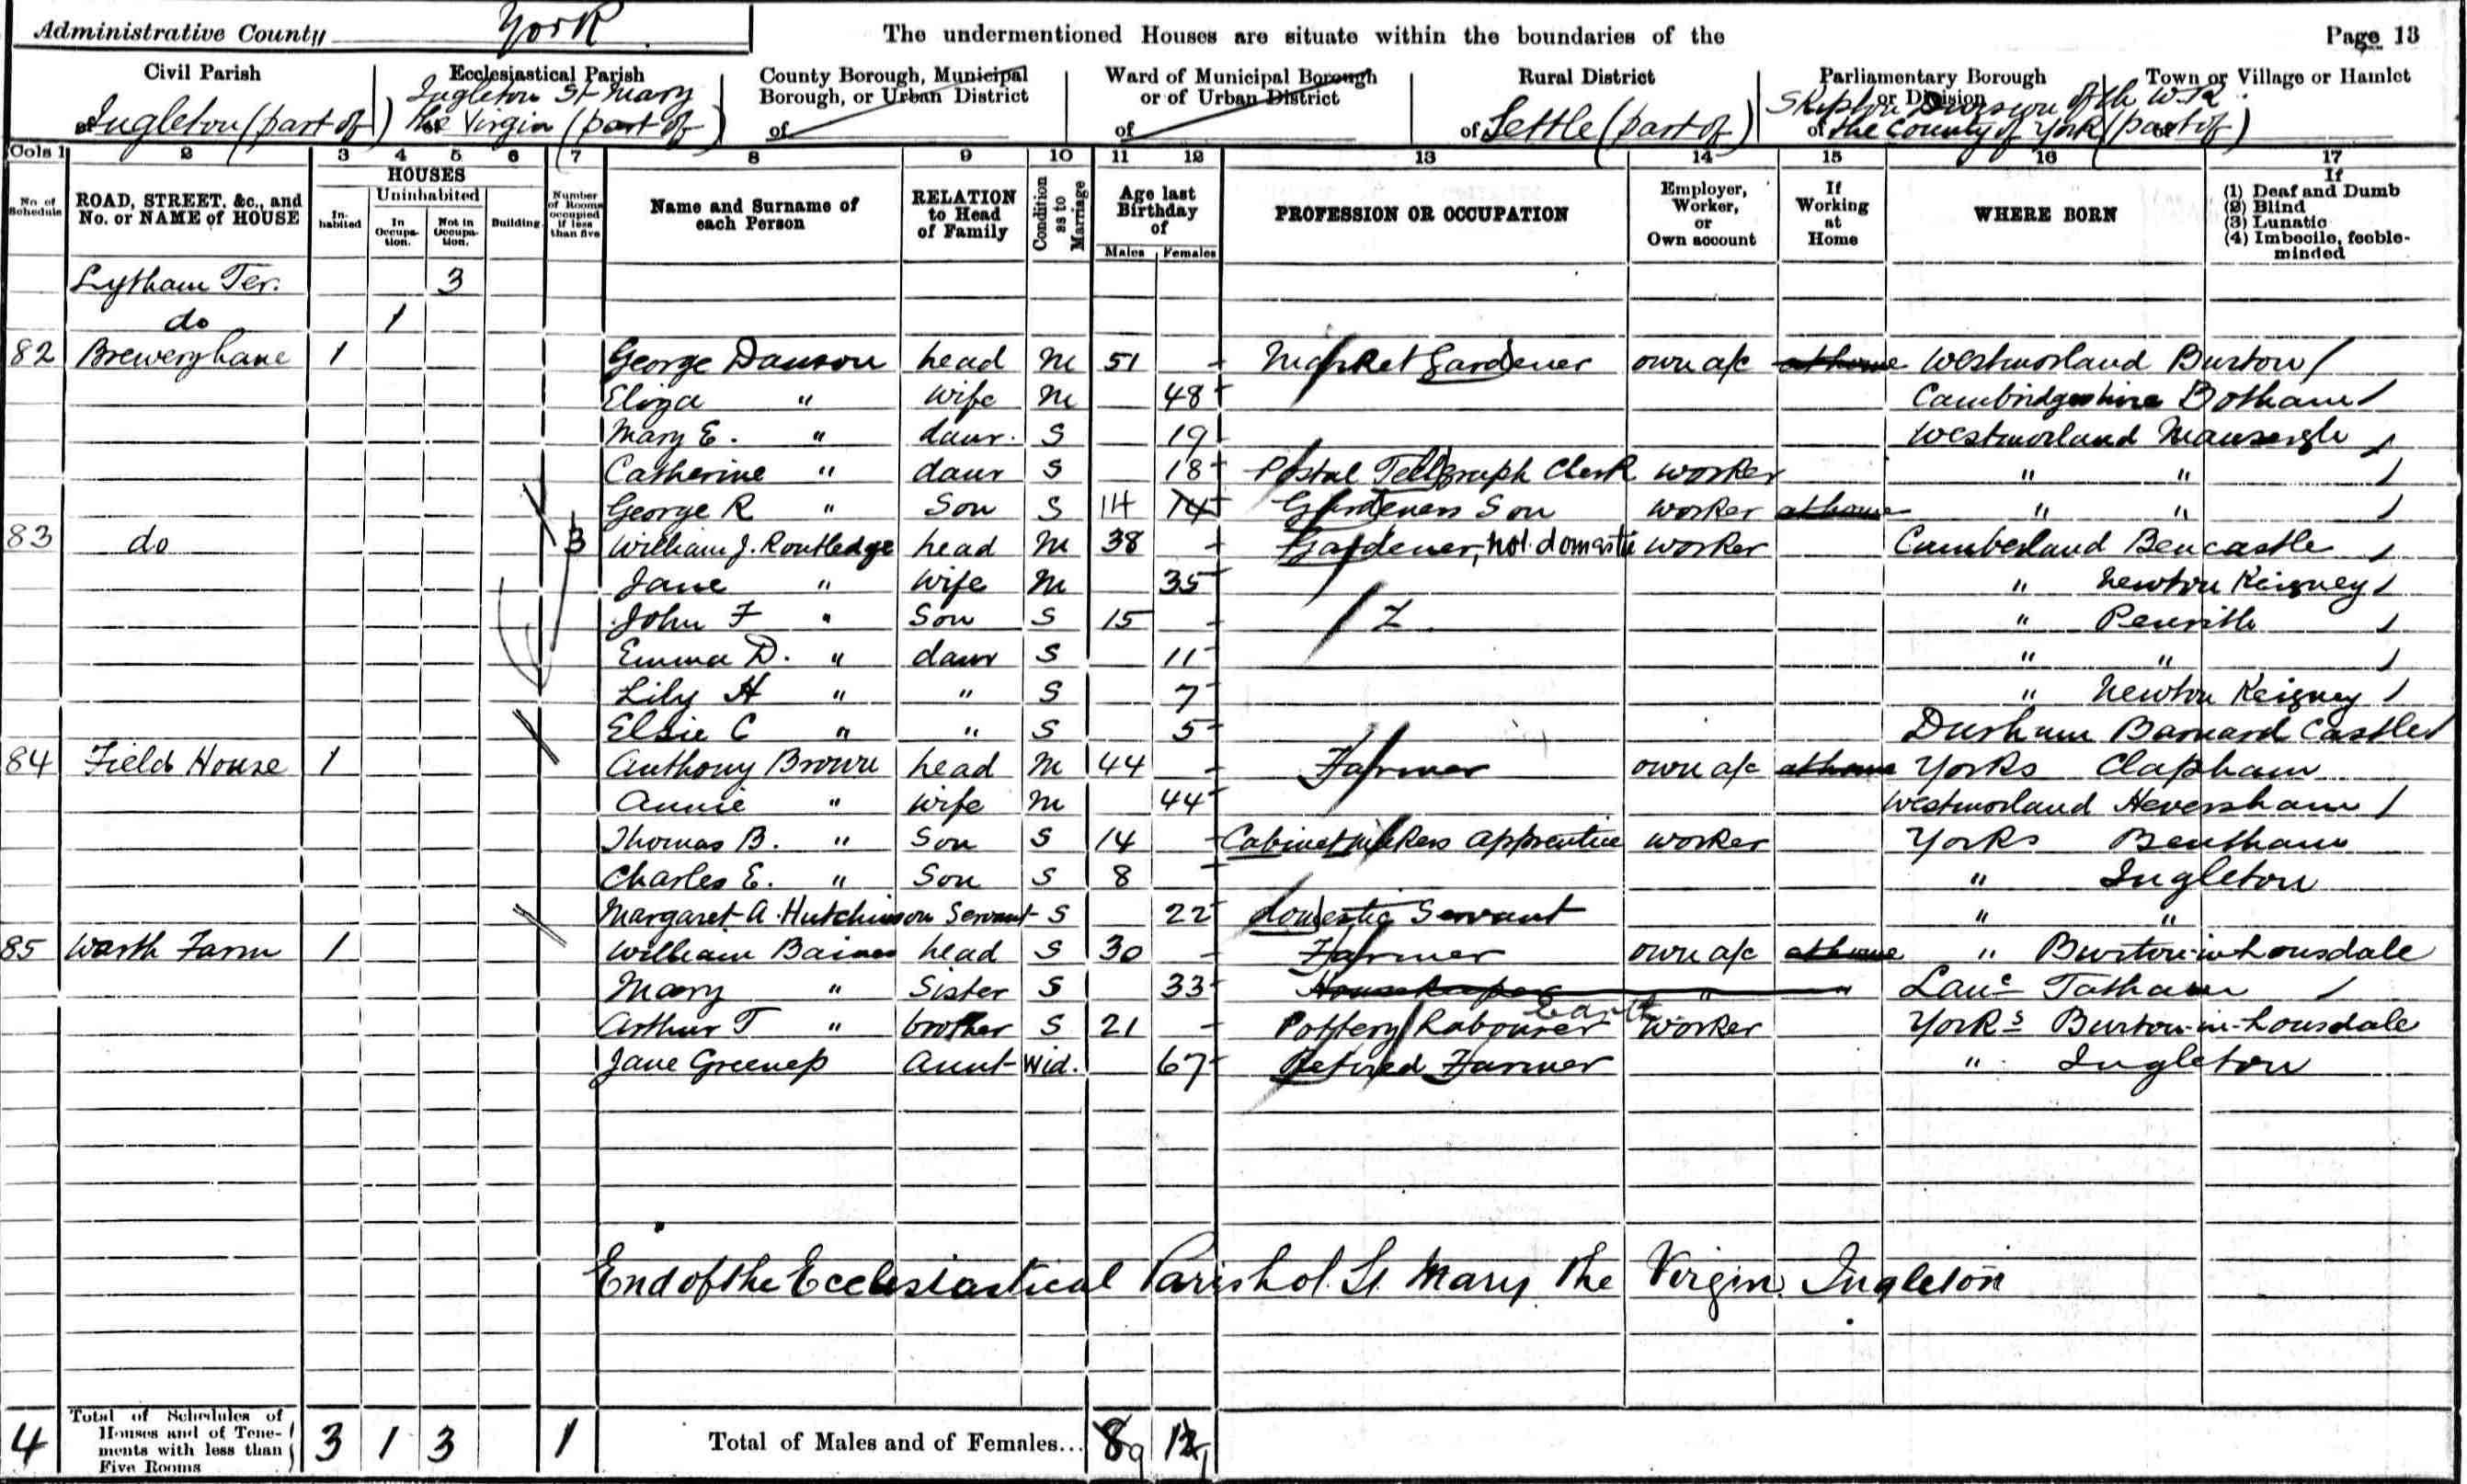 Administrative County York The undermentioned Houses are situate within the boundaries of the Page 13
Civil Parish Ecclesiastical Parish County Borough, Municipal Borough, or Urban District Ward of Municipal Borough or of Urban District Rural District Parliamentary Borough or Division Town or Village or Hamlet
of Ingleton (part of) Ingleton St Mary the Virgin (part of) of of of Settle (part of) Skipton Division of the W.R. of the County of York (part of)
Cols 1 2 3 4 5 6 7 8 9 10 11 12 13 14 15 16 17
No. of Schedule ROAD, STREET, &c., and No. or NAME of HOUSE HOUSES Inhabited Uninhabited In Occupation. Not in Occupation. Building Number of Rooms occupied if less than five Name and Surname of each Person RELATION to Head of Family Condition as to Marriage Age last Birthday of Males Females PROFESSION OR OCCUPATION Employer, Worker, or Own account If Working at Home WHERE BORN If (1) Deaf and Dumb (2) Blind (3) Lunatic (4) Imbecile, feeble-minded
Lytham Ter. 3
do 1
82 Brewery Lane 1 George Dawson head M 51 Market Gardener own a/c at home Westmorland Burton
Eliza " wife M 48 Cambridgeshire Botham
Mary E. " daur. S 19 Westmorland Mansergh
Catherine " daur S 18 Postal Telegraph Clerk worker " "
George R " Son S 14 14 Gardeners Son worker at home " "
83 do 3 William J. Routledge head M 38 Gardener, not domestic worker Cumberland Bencastle
Jane " wife M 35 " Newton Reigney
John F " Son S 15 " Penrith
Emma D. " daur S 11 " "
Lily H " " S 7 " Newton Reigney
Elsie C " " S 5 Durham Barnard Castle
84 Field House 1 Anthony Brown head M 44 Farmer own a/c at home Yorks Clapham
Annie " wife M 44 Westmorland Heversham
Thomas B. " Son S 14 Cabinetmakers apprentice worker Yorks Bentham
Charles E. " Son S 8 " Ingleton
Margaret A. Hutchinson Servant S 22 domestic Servant " "
85 Warth Farm 1 William Baines head S 30 Farmer own a/c at home " Burton-in-Lonsdale
Mary " Sister S 33 Housekeeper " " Lanc Tatham
Arthur T " brother S 21 Pottery Labourer Earth worker Yorks Burton-in-Lonsdale
Jane Greenep Aunt Wid. 67 Retired Farmer " Ingleton
End of the Ecclesiastical Parish of St. Mary the Virgin Ingleton
4 Total of Schedules of Houses and of Tenements with less than Five Rooms 3 1 3 1 Total of Males and of Females... 8 9 12